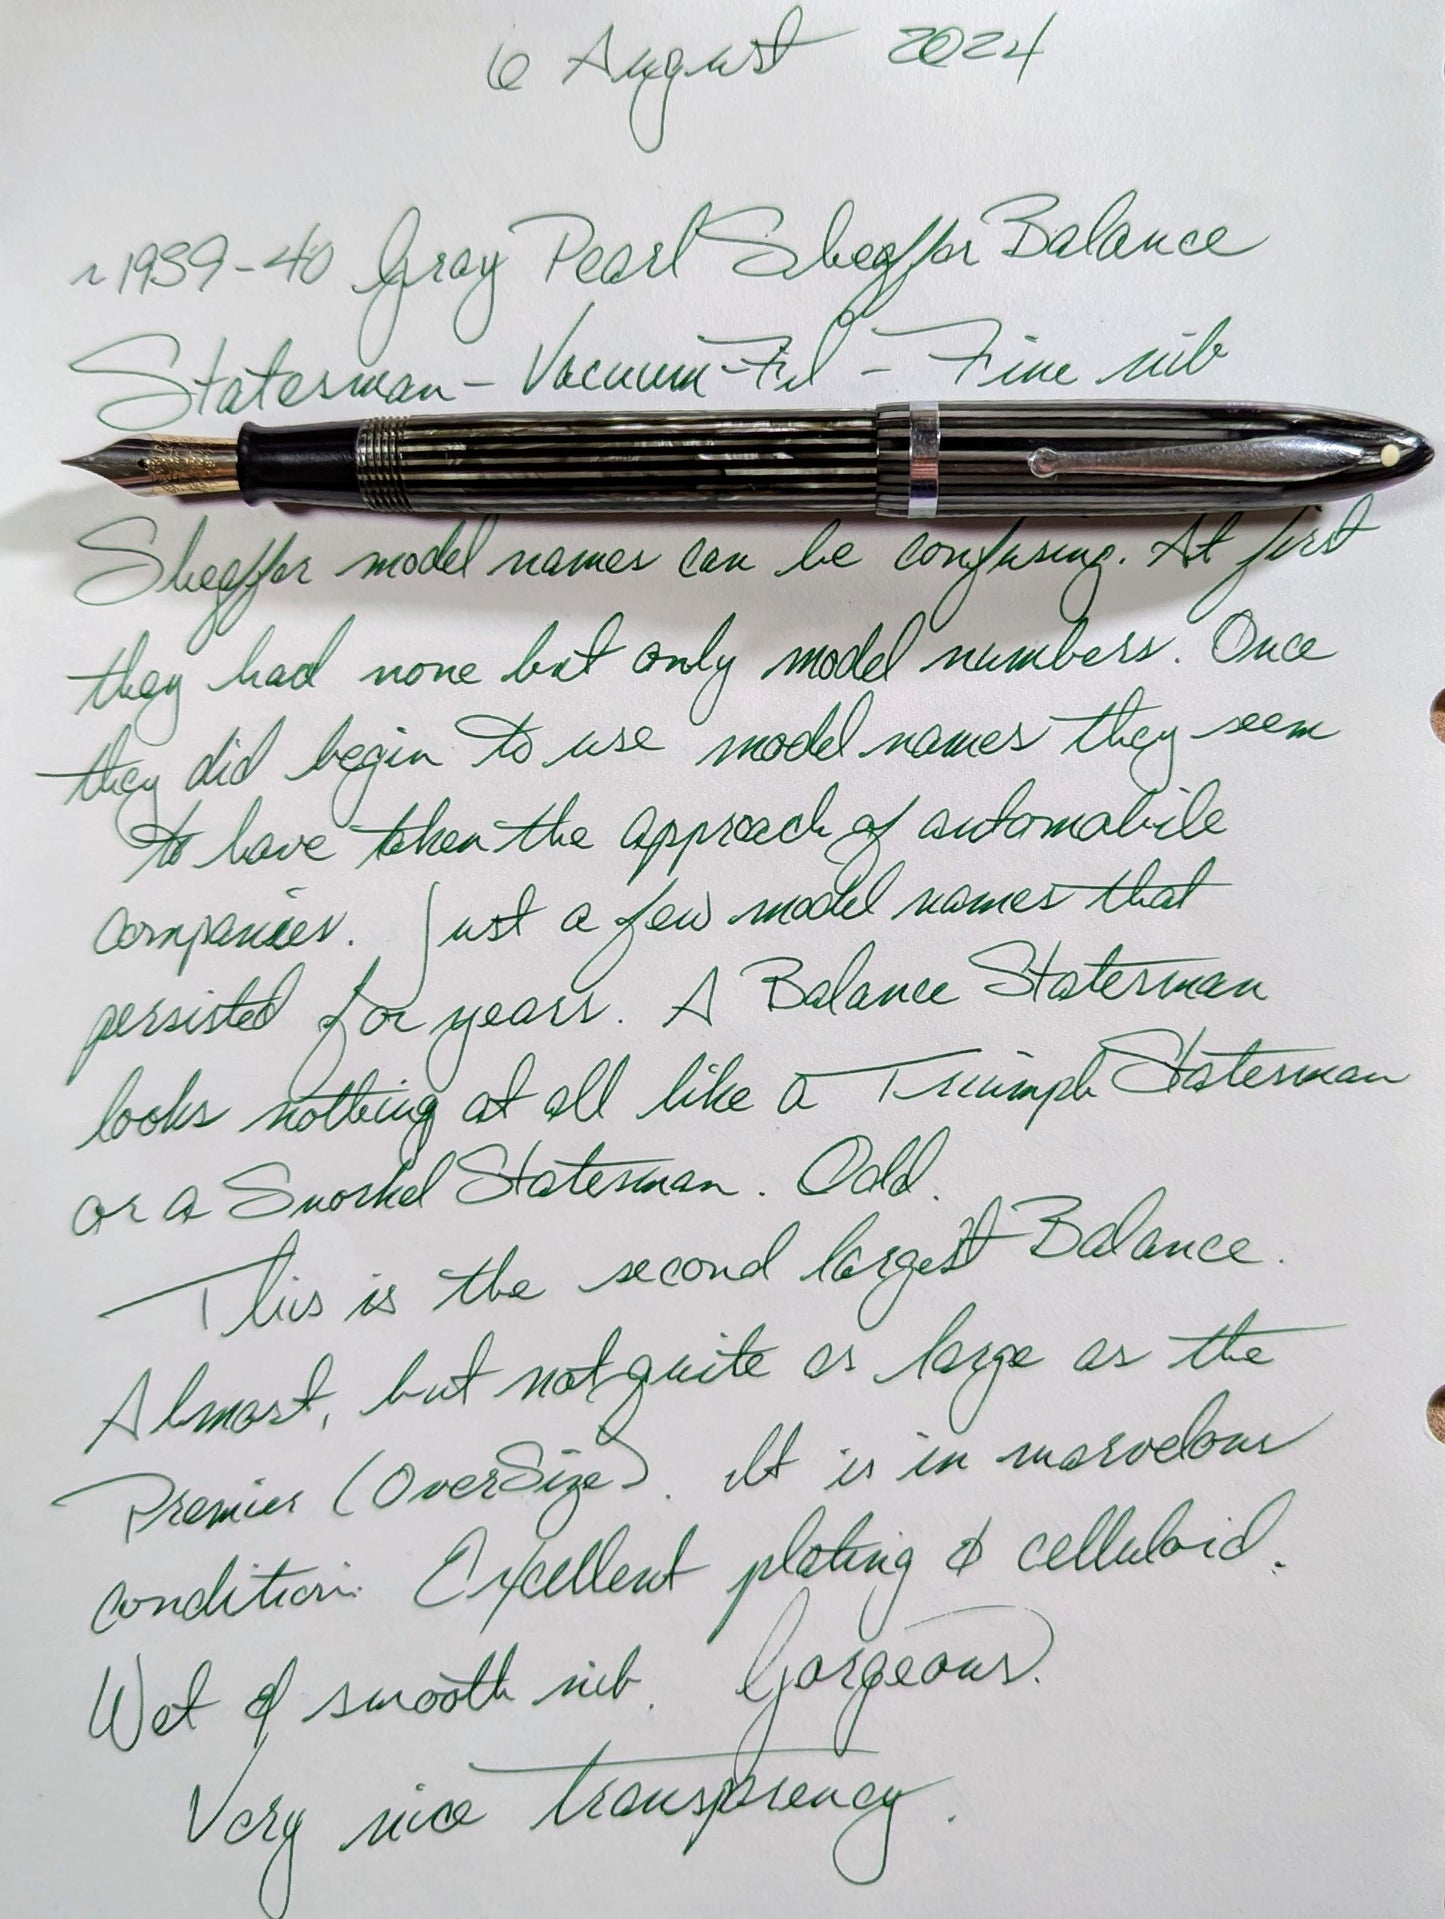 6 August 2024
~1939-40 Gray Pearl Sheaffer Balance
Statesman - Vacuum-Fil - Fine nib
Sheaffer model names can be confusing. At first
they had none but only model numbers. Once
they did begin to use model names they seem
to have taken the approach of automobile
companies. Just a few model names that
persisted for years. A Balance Statesman
looks nothing at all like a Triumph Statesman
or a Snorkel Statesman. Odd.
This is the second largest Balance.
Almost, but not quite as large as the
Premier (OverSize). It is in marvelous
condition. Excellent plating & celluloid.
Wet & smooth nib. Gorgeous.
Very nice transprency.